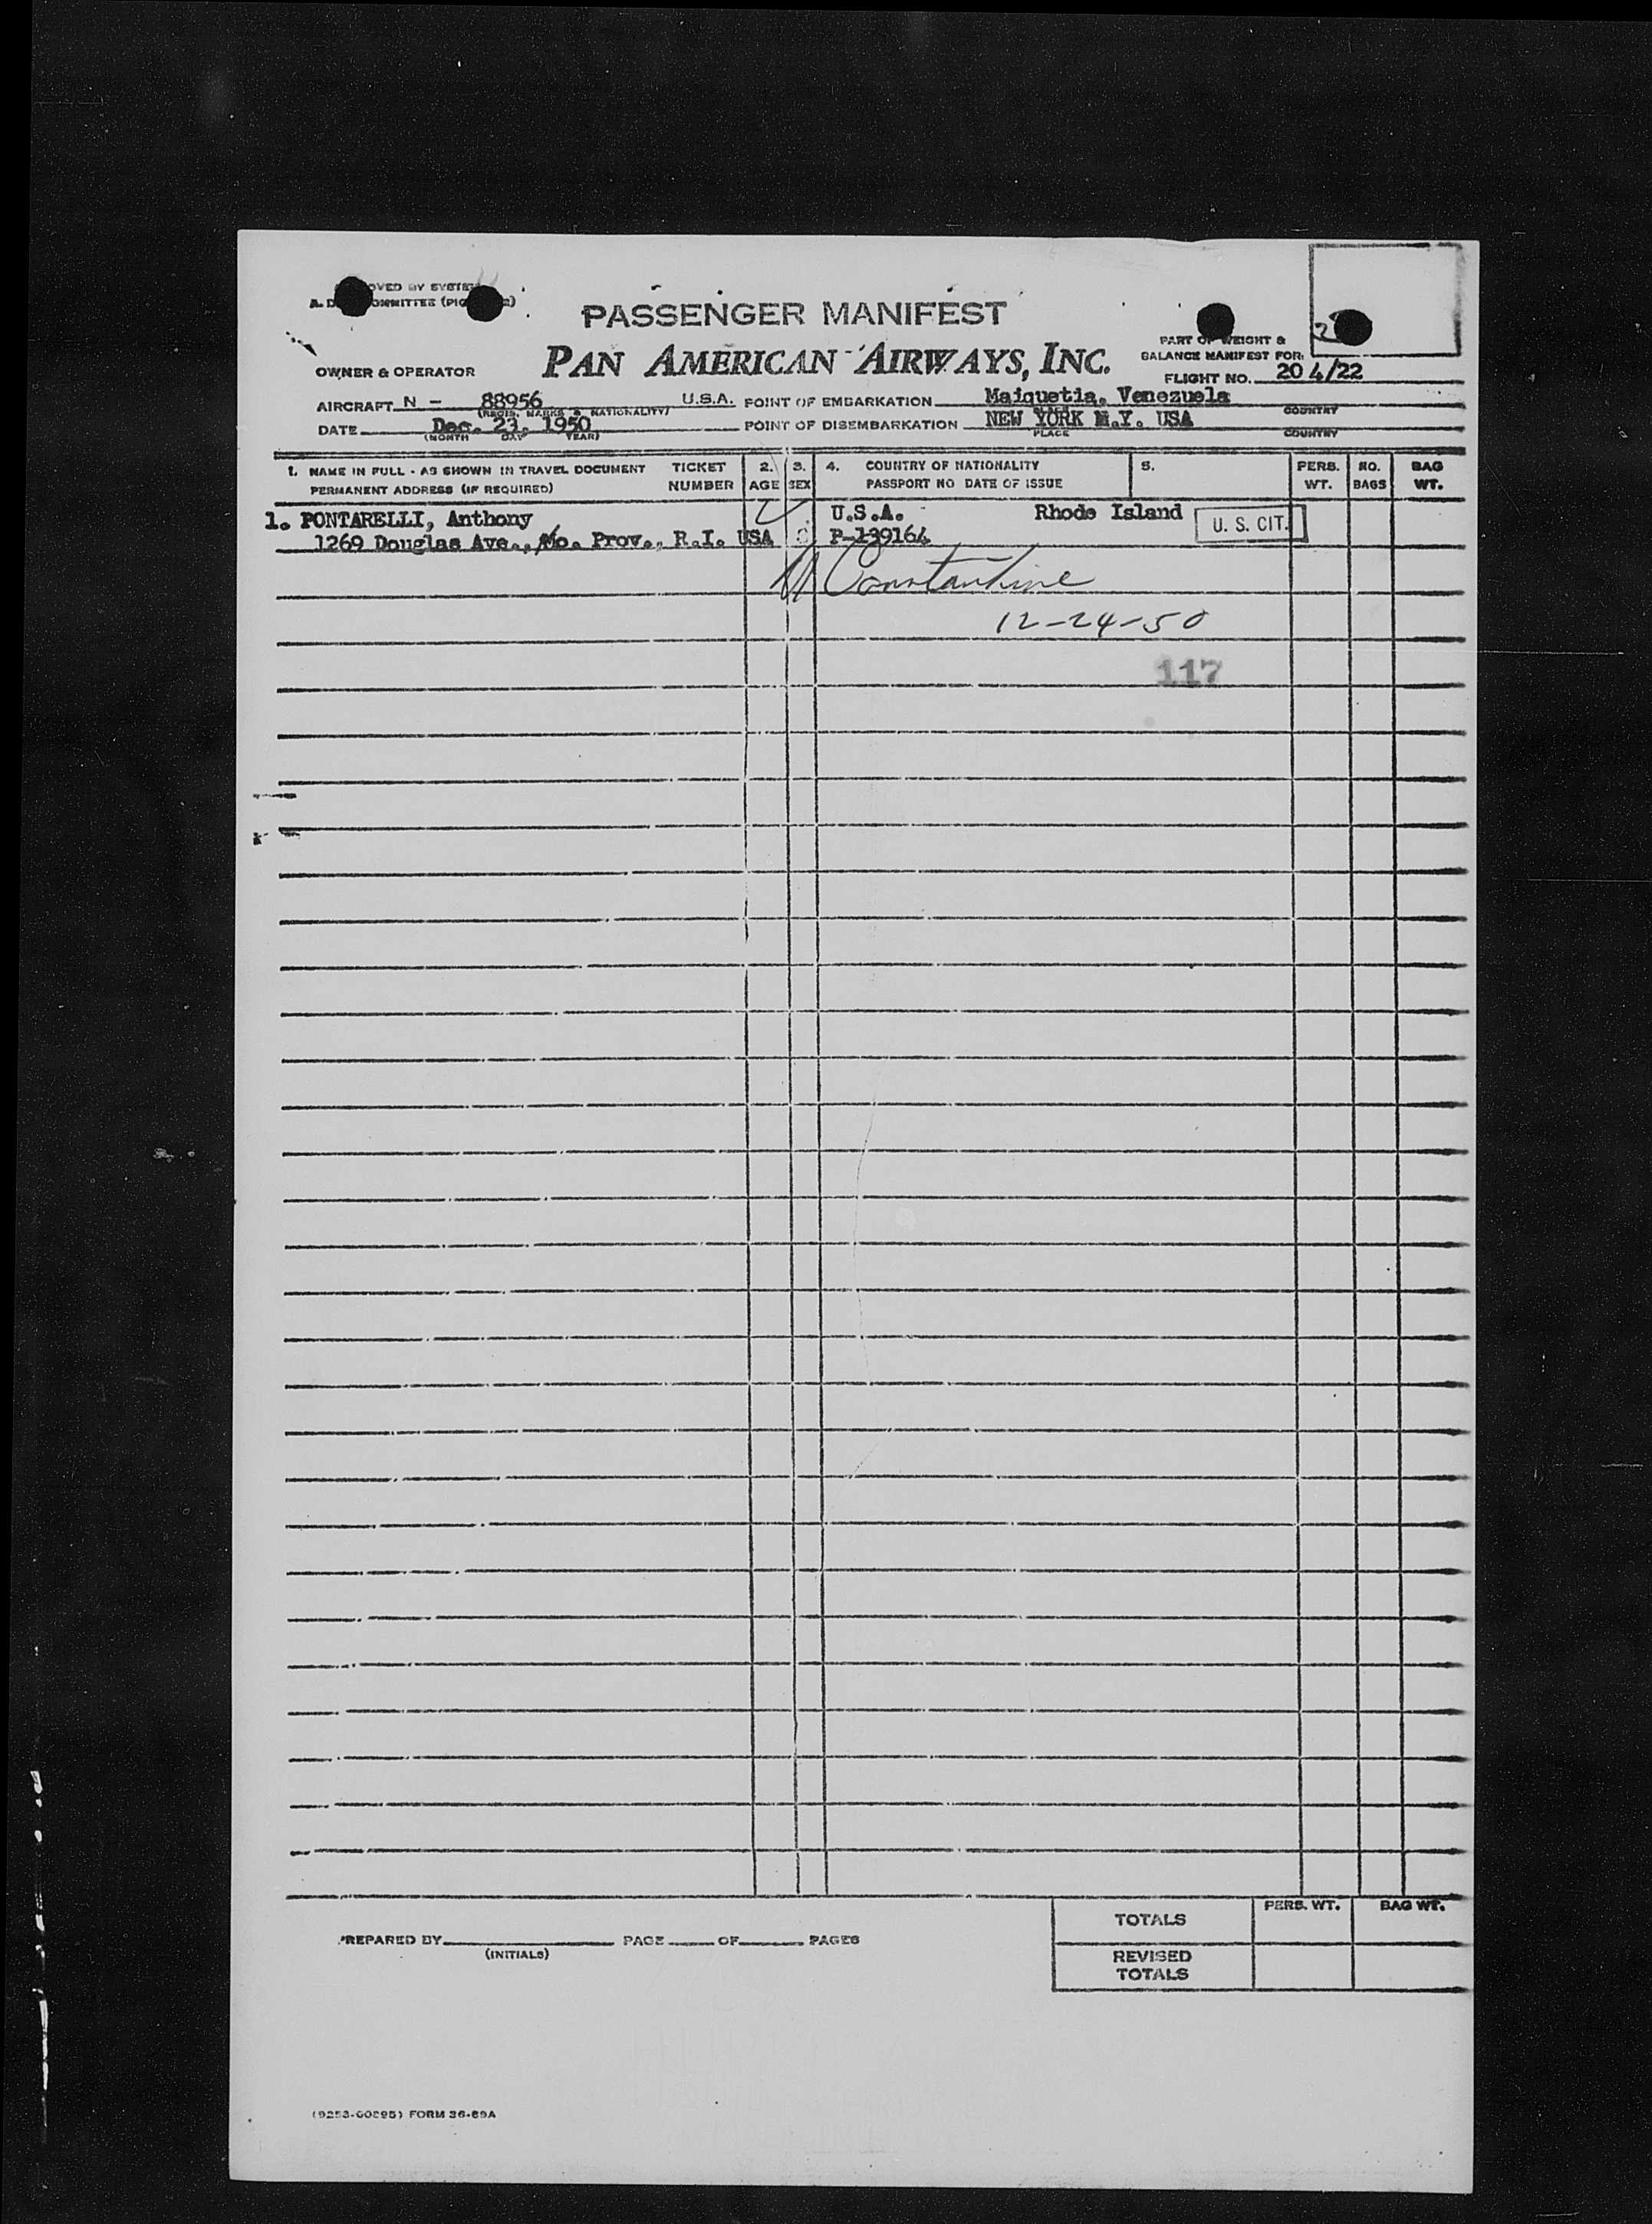 PASSENGER MANIFEST
PAN AMERICAN AIRWAYS, INC.
PART OF WEIGHT &
BALANCE MANIFEST FOR:
FLIGHT NO. 204/22
OWNER & OPERATOR
AIRCRAFT N - 88956 U.S.A. POINT OF EMBARKATION Maiquetia, Venezuela
(REGIS. MARKS & NATIONALITY) COUNTRY
DATE Dec. 23, 1950 POINT OF DISEMBARKATION NEW YORK N.Y. USA
(MONTH DAY YEAR) PLACE COUNTRY
1. NAME IN FULL - AS SHOWN IN TRAVEL DOCUMENT TICKET 2. 3. 4. COUNTRY OF NATIONALITY 5. PERS. NO. BAG
PERMANENT ADDRESS (IF REQUIRED) NUMBER AGE SEX PASSPORT NO DATE OF ISSUE WT. BAGS WT.
1. PONTARELLI, Anthony U.S.A. Rhode Island U. S. CIT.
1269 Douglas Ave., No. Prov., R.I. USA P-139164
Constantine
12-24-50
117
PERS. WT. BAG WT.
TOTALS
PREPARED BY PAGE OF PAGES
(INITIALS)
REVISED
TOTALS
FORM 36-69A